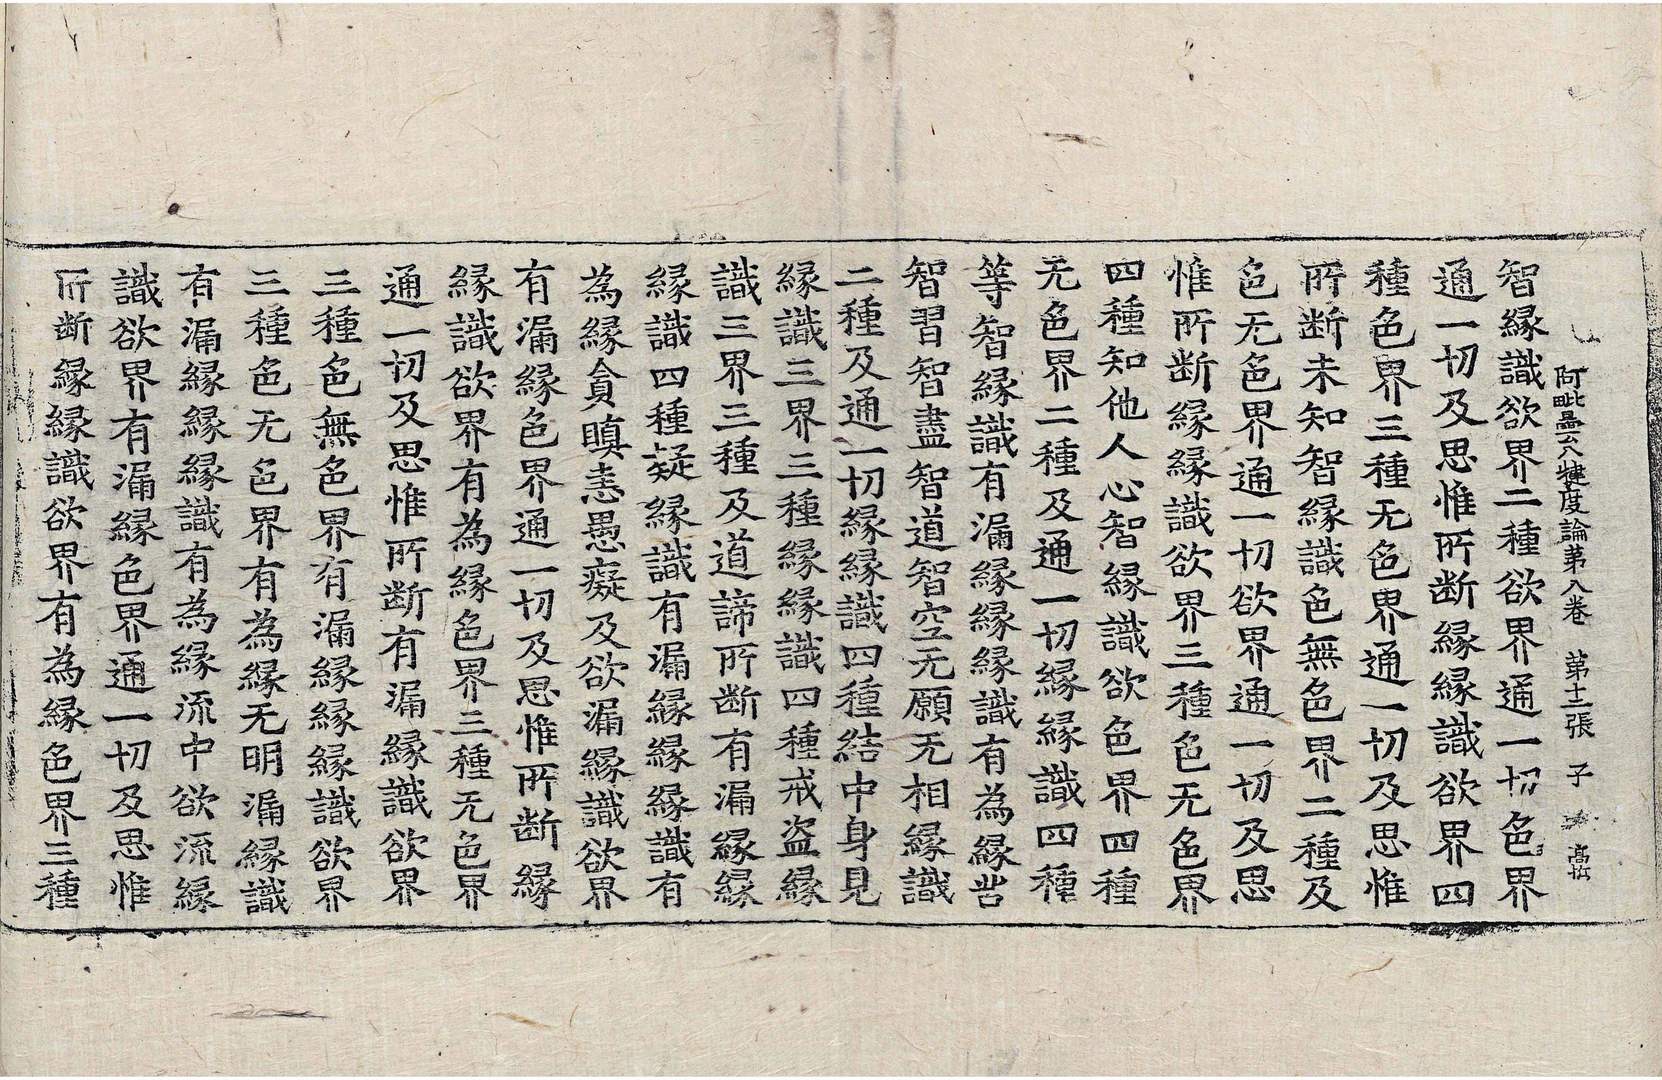 阿毗曇八犍度論第八卷 第十二張 子
智縁識欲界二種欲界通一切色界
通一切及思惟所断縁縁識欲界四
種色界三種无色界通一切及思惟
所断未知智縁識色無色界二種及
色无色界通一切欲界通一切及思
惟所断縁縁識欲界三種色无色界
四種知他人心智縁識欲色界四種
无色界二種及通一切縁縁識四種
等智縁識有漏縁縁識有為縁苦
智習智盡智道智空无願无相縁識
二種及通一切縁縁識四種結中身見
縁識三界三種縁縁識四種戒盗縁
識三界三種及道諦所断有漏縁縁
縁識四種疑縁識有漏縁縁縁識有
為縁貪瞋恚愚癡及欲漏縁識欲界
有漏縁色界通一切及思惟所断縁
縁識欲界有為縁色界三種无色界
通一切及思惟所断有漏縁識欲界
三種色無色界有漏縁縁縁識欲界
三種色无色界有為縁无明漏縁識
有漏縁縁縁識有為縁流中欲流縁
識欲界有漏縁色界通一切及思惟
所断縁縁識欲界有為縁色界三種